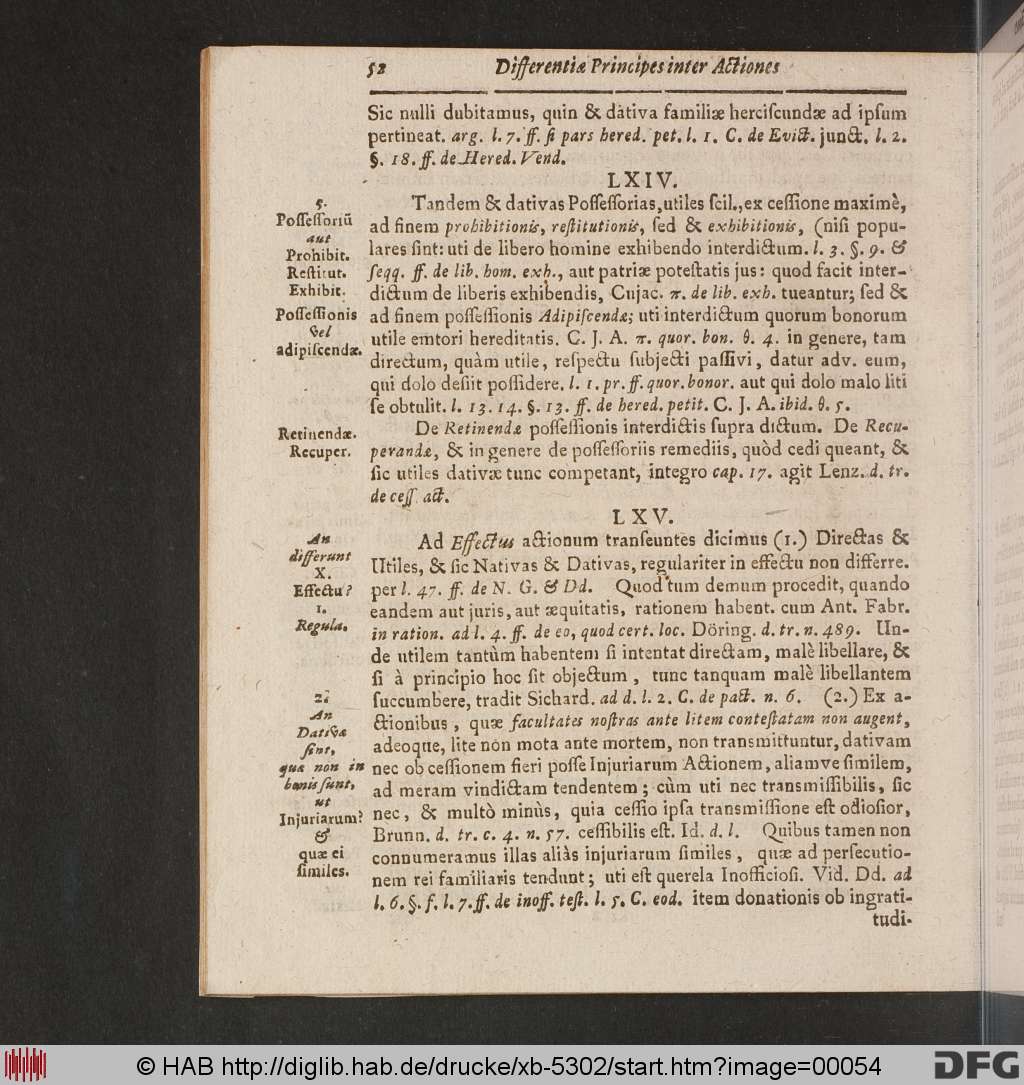 52 Differentiæ Principes inter Actiones
Sic nulli dubitamus, quin & dativa familiæ herciſcundæ ad ipſum
pertineat. arg. l. 7. ff. ſi pars hered. pet. l. 1. C. de Evict. junct. l. 2.
§. 18. ff. de Hered. Vend.
LXIV.
5.
Poſſeſſoriũ
aut
Prohibit.
Reſtitut.
Exhibit.
Poſſeſſionis
vel
adipiſcendæ.
Tandem & dativas Poſſeſſorias, utiles ſcil., ex ceſſione maximè,
ad finem prohibitionis, reſtitutionis, ſed & exhibitionis, (niſi popu-
lares ſint: uti de libero homine exhibendo interdictum. l. 3. §. 9. &
ſeqq. ff. de lib. hom. exh., aut patriæ poteſtatis jus: quod facit inter-
dictum de liberis exhibendis, Cujac. π. de lib. exh. tueantur; ſed &
ad finem poſſeſſionis Adipiſcendæ; uti interdictum quorum bonorum
utile emtori hereditatis. C. J. A. π. quor. bon. θ. 4. in genere, tam
directum, quàm utile, reſpectu ſubjecti paſſivi, datur adv. eum,
qui dolo deſiit poſſidere. l. 1. pr. ff. quor. bonor. aut qui dolo malo liti
ſe obtulit. l. 13. 14. §. 13. ff. de hered. petit. C. J. A. ibid. θ. 5.
Retinendæ.
Recuper.
De Retinendæ poſſeſſionis interdictis ſupra dictum. De Recu-
perandæ, & in genere de poſſeſſoriis remediis, quòd cedi queant, &
ſic utiles dativæ tunc competant, integro cap. 17. agit Lenz. d. tr.
de ceſſ. act.
LXV.
An
differunt
X.
Effectu?
1.
Regula.
Ad Effectus actionum tranſeuntes dicimus (1.) Directas &
Utiles, & ſic Nativas & Dativas, regulariter in effectu non differre.
per l. 47. ff. de N. G. & Dd. Quod tum demum procedit, quando
eandem aut juris, aut æquitatis, rationem habent. cum Ant. Fabr.
in ration. ad l. 4. ff. de eo, quod cert. loc. Döring. d. tr. n. 489. Un-
de utilem tantùm habentem ſi intentat directam, malè libellare, &
ſi à principio hoc ſit objectum, tunc tanquam malè libellantem
ſuccumbere, tradit Sichard. ad d. l. 2. C. de pact. n. 6. (2.) Ex a-
ctionibus, quæ facultates noſtras ante litem conteſtatam non augent,
adeoque, lite non mota ante mortem, non transmittuntur, dativam
nec ob ceſſionem fieri poſſe Injuriarum Actionem, aliamve ſimilem,
ad meram vindictam tendentem; cùm uti nec transmiſſibilis, ſic
nec, & multò minùs, quia ceſſio ipſa transmiſſione eſt odioſior,
Brunn. d. tr. c. 4. n. 57. ceſſibilis eſt. Id. d. l. Quibus tamen non
connumeramus illas aliàs injuriarum ſimiles, quæ ad perſecutio-
nem rei familiaris tendunt; uti eſt querela Inofficioſi. Vid. Dd. ad
l. 6. §. f. l. 7. ff. de inoff. teſt. l. 5. C. eod. item donationis ob ingrati-
tudi-
2.
An
Dativæ
ſint,
quæ non in
bonis ſunt,
ut
Injuriarum?
&
quæ ei
ſimiles.
© HAB http://diglib.hab.de/drucke/xb-5302/start.htm?image=00054
DFG